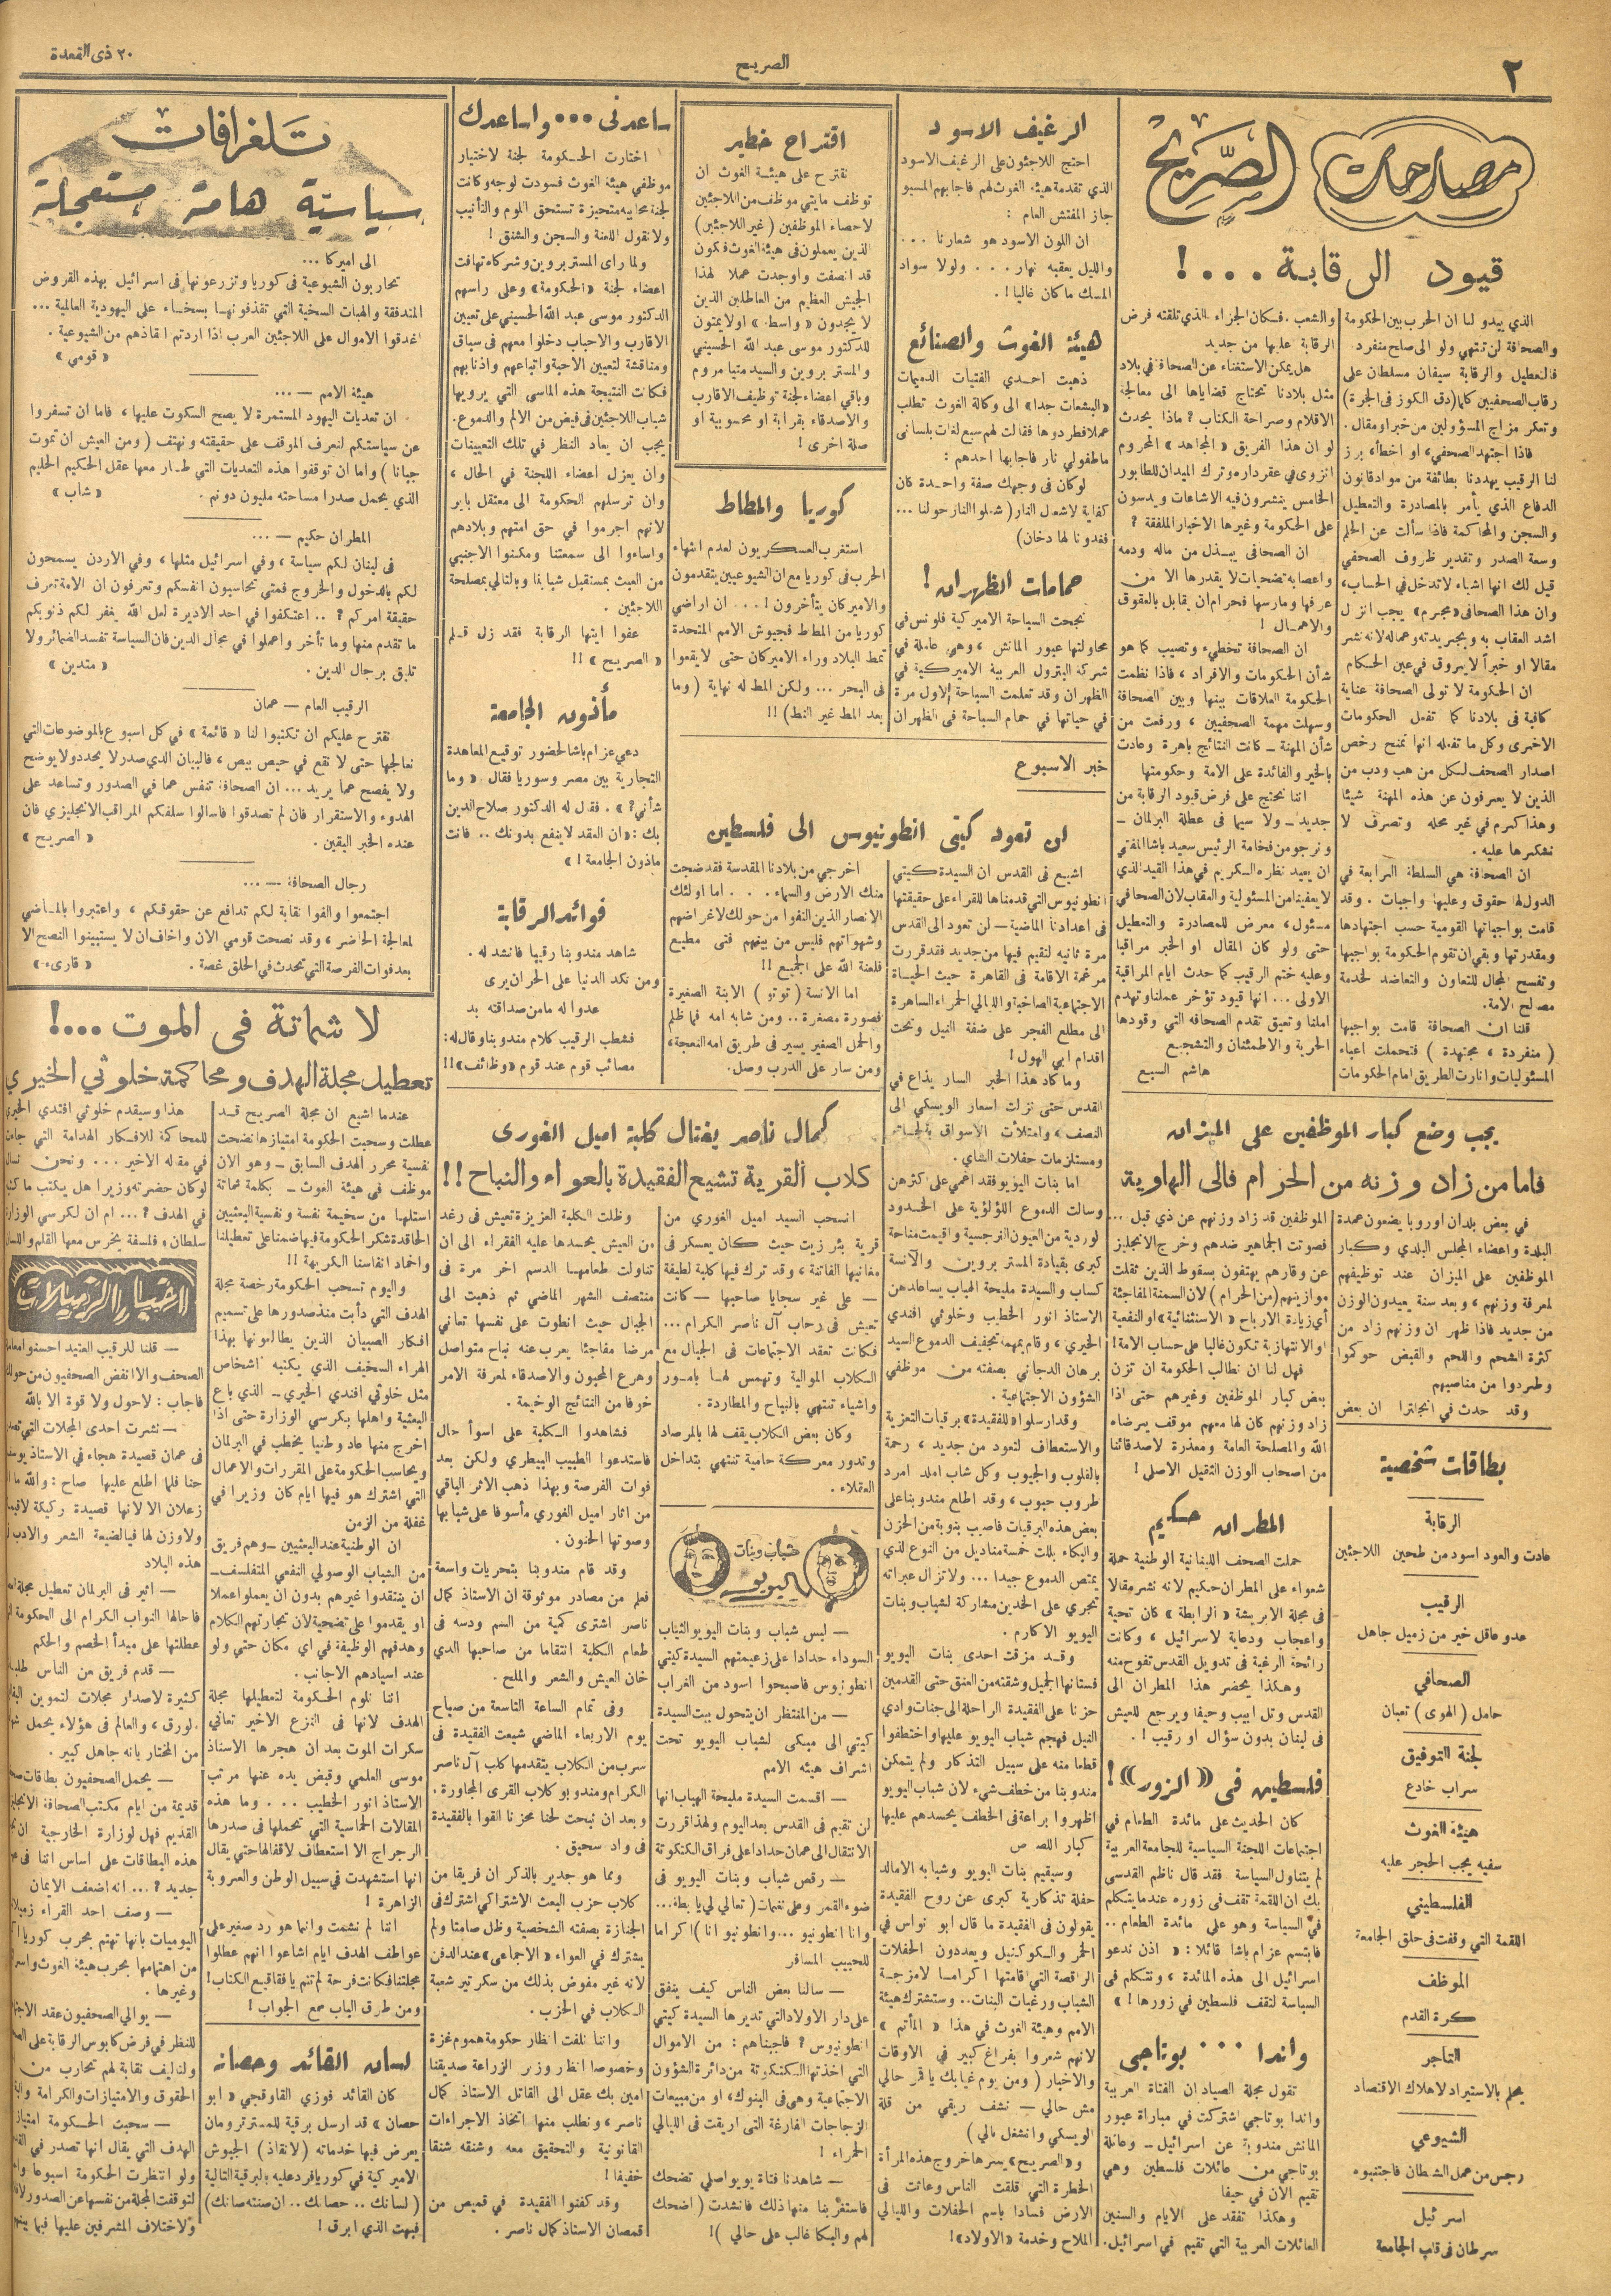 ٢
الصريح
٢٠ ذى القعدة
مصارحات الصَّريح
قيود الرقابة . . . !
الذي يبدو لنا ان الحرب بين الحكومة
والصحافة لن تنتهي ولو الى صلح منفرد
فالتعطيل والرقابة سيفان مسلطان على
رقاب الصحفيين كلما (دق الكوز فى الجرة)
وتعكر مزاج المسؤولين من خبر او مقال .
فاذا اجتهد الصحفي، او اخطأ، برز
لنا الرقيب يهددنا بطائفة من مواد قانون
الدفاع الذي يأمر بالمصادرة والتعطيل
والسجن والمحاكمة فاذا سألت عن الحلم
وسعة الصدر وتقدير ظروف الصحفي
قيل لك انها اشياء لا تدخل في الحساب،
وان هذا الصحافى «مجرم» يجب انزل
اشد العقاب به وبجريدته وعماله لانه نشر
مقالا او خبراً لا يروق في عين الحكام
ان الحكومة لا تولى الصحافة عناية
كافية فى بلادنا كما تفعل الحكومات
الاخرى وكل ما تفعله انها تمنح رخص
اصدار الصحف لكل من هب ودب من
الذين لا يعرفون عن هذه المهنة شيئا
وهذا كرم في غير محله وتصرف لا
نشكرها عليه .
ان الصحافة هي السلطة الرابعة في
الدول لها حقوق وعليها واجبات . وقد
قامت بواجباتها القومية حسب اجتهادها
ومقدرتها وبقي ان تقوم الحكومة بواجبها
وتفسح المجال للتعاون والتعاضد لخدمة
مصالح الامة.
قلنا ان الصحافة قامت بواجبها
( منفردة ، مجتهدة ) فتحملت اعباء
المسئوليات وانارت الطريق امام الحكومات
والشعب . فكان الجزاء الذي تلقته فرض
الرقابة عليها من جديد
هل يمكن الاستغناء عن الصحافة في بلاد
مثل بلادنا تحتاج قضاياها الى معالجة
الاقلام وصراحة الكتاب ؟ ماذا يحدث
لو ان هذا الفريق « المجاهد » المحروم
انزوى في عقر داره وترك الميدان للطابور
الخامس ينشرون فيه الاشاعات ويدسون
على الحكومة وغيرها الاخبار الملفقة ؟
ان الصحافى يبذل من ماله ودمه
واعصابه تضحيات لا يقدرها الا من
عرفها ومارسها فحرام ان يقابل بالعقوق
والاهمال !
ان الصحافة تخطيء وتصيب كما هو
شأن الحكومات والافراد ، فاذا نظمت
الحكومة العلاقات بينها وبين الصحافة
وسهلت مهمة الصحفيين ، ورفعت من
شأن المهنة ــ كانت النتائج باهرة وعادت
بالخير والفائدة على الامة وحكومتها
اننا نحتج على فرض قيود الرقابة من
جديد ــ ولا سيما فى عطلة البرلمان ــ
ونرجو من فخامة الرئيس سعيد باشا المفتي
ان يعيد نظره الكريم في هذا القيد الذي
لا يعفينا من المسئولية والعقاب لان الصحافي
مسئول، معرض للمصادرة والتعطيل
حتى ولو كان المقال او الخبر مراقبا
وعليه ختم الرقيب كما حدث ايام المراقبة
الاولى ... انها قيود تؤخر عملنا وتهدم
املنا وتعيق تقدم الصحافه التي وقودها
الحرية والاطمئنان والتشجيع
هاشم السبع
يجب وضع كبار الموظفين على الميزان
فاما من زاد وزنه من الحرام فالى الهاوية
في بعض بلدان اوروبا يضعون عمدة
البلدة واعضاء المجلس البلدي وكبار
الموظفين على الميزان عند توظيفهم
لمعرفة وزنهم ، وبعد سنة يعيدون الوزن
من جديد فاذا ظهر ان وزنهم زاد من
كثرة الشحم واللحم والقبض حوكموا
وطردوا من مناصبهم
وقد حدث في انجلترا ان بعض
الموظفين قد زاد وزنهم عن ذي قبل ...
فصوتت الجماهير ضدهم وخرج الانجليز
عن وقارهم يهتفون بسقوط الذين ثقلت
موازينهم (من الحرام) لان السمنة المفاجئة
أي زيادة الارباح « الاستثنائية » او النفعية
او الانتهازية تكون غالبا على حساب الامة!
فهل لنا ان نطالب الحكومة ان تزن
بعض كبار الموظفين وغيرهم حتى اذا
زاد وزنهم كان لها معهم موقف يرضاه
الله والمصلحة العامة ومعذرة لاصدقائنا
من اصحاب الوزن الثقيل الاصلى !
بطاقات شخصية
الرقابة
عادت والعود اسود من طحين اللاجئين
الرقيب
عدو عاقل خير من زميل جاهل
الصحافي
حامل ( الهوى ) تعبان
لجنة التوفيق
سراب خادع
هيئة الغوث
سفيه يجب الحجر عليه
الفلسطيني
اللقمة التي وقفت فى حلق الجامعة
الموظف
كرة القدم
التاجر
يحلم بالاستيراد لاهلاك الاقتصاد
الشيوعي
رجس من عمل الشطان فاجتنبوه
اسرائيل
سرطان فى قلب الجامعة
المطران حكيم
حملت الصحف اللبنانية الوطنية حملة
شعواء على المطران حكيم لانه نشر مقالا
فى مجلة الابرشة « الرابطة » كان تحية
واعجاب ودعاية لاسرائيل ، وكانت
رائحة الرغبة فى تدويل القدس تفوح منه
وهكذا يحضر هذا المطران الى
القدس وتل ابيب وحيفا ويرجع للعيش
فى لبنان بدون سؤال او رقيب ! .
فلسطين فى «الزور»!
كان الحديث على مائدة الطعام في
اجتماعات اللجنة السياسية للجامعة العربية
لم يتناول السياسة فقد قال ناظم القدسى
بك ان اللقمة تقف فى زوره عندما يتكلم
فى السياسة وهو على مائدة الطعام ..
فابتسم عزام باشا قائلا : « اذن ندعو
اسرائيل الى هذه المائدة ، ونتكلم فى
السياسة لتقف فلسطين في زورها ! »
واندا ... بوتاجى
تقول مجلة الصياد ان الفتاة العربية
واندا بوتاجي اشتركت في مباراة عبور
المانش مندوبة عن اسرائيل ــ وعائلة
بوتاجي من عائلات فلسطين وهي
تقيم الان في حيفا
وهكذا تفقد على الايام والسنين
العائلات العربية التي تقيم في اسرائيل.
الرغيف الاسود
احتج اللاجئون على الرغيف الاسود
الذي تقدمه هيئة الغوث لهم فاجابهم المسيو
جاز المفتش العام :
ان اللون الاسود هو شعارنا ...
والليل يعقبه نهار . . . ولولا سواد
المسك ما كان غاليا ! .
هيئة الغوث والصنائع
ذهبت احدي الفتيات الدميمات
«البشعات جدا» الى وكالة الغوث تطلب
عملا فطردوها فقالت لهم سبع لغات بلسانى
ما طفولي نار فاجابها احدهم :
لو كان فى وجهك صفة واحدة كان
كفاية لاشعال النار ( شعلوا النار حولنا ...
فقدونا لها دخان)
حمامات الظهران !
نجحت السباحة الاميركية فلونس في
محاولتها عبور المانش ، وهي عاملة في
شركة البترول العربية الاميركية في
الظهران وقد تعلمت السباحة لاول مرة
في حياتها في حمام السباحة فى الظهران
اقتراح خطير
نقترح على هيئة الغوث ان
توظف مايتي موظف من اللاجئين
لاحصاء الموظفين ( غير اللاجئين)
الذين يعملون فى هيئة الغوث فتكون
قد انصفت واوجدت عملا لهذا
الجيش العظيم من العاطلين الذين
لا يجدون « واسطة » او لا يمتون
للدكتور موسى عبد الله الحسيني
والمستر بروين والسيد متيا مروم
وباقي اعضاء لجنة توظيف الاقارب
والاصدقاء بقرابة او محسوبية او
صلة اخرى !
كوريا والمطاط
استغرب العسكريون لعدم انتهاء
الحرب فى كوريا مع ان الشيوعيين يتقدمون
والاميركان يتأخرون ! . . ان اراضي
كوريا من المطاط فجيوش الامم المتحدة
تمط البلاد وراء الاميركان حتى لا يقعوا
فى البحر ... ولكن المط له نهاية ( وما
بعد المط غير النط) !!
خبر الاسبوع
لن تعود كيتى انطونيوس الى فلسطين
اشيع فى القدس ان السيدة كيتي
انطونيوس التي قدمناها للقراء على حقيقتها
فى اعدادنا الماضية ــ لن تعود الى القدس
مرة ثانية لتقيم فيها من جديد فقد قررت
مرغمة الاقامة فى القاهرة حيث الحياة
الاجتماعية الصاخبة والليالي الحمراء الساهرة
الى مطلع الفجر على ضفة النيل وتحت
اقدام ابي الهول !
وما كاد هذا الخبر السار يذاع في
القدس حتى نزلت اسعار الويسكي الى
النصف ، وامتلأت الاسواق
ومستلزمات حفلات الشاي .
اما بنات اليويو فقد اغمي على اكثرهن
وسالت الدموع اللؤلؤية على الخدود
لوردية من العيون النرجسية واقيمت مناحة
كبرى بقيادة المستر بروين والآنسة
كساب والسيدة مليحة الهباب يساعدهن
الاستاذ انور الخطيب وخلوئي افندي
الخيري ، وقام بمهمة تجفيف الدموع السيد
برهان الدجاني بصفته من موظفي
الشؤون الاجتماعية .
وقد ارسلوا « للفقيدة » برقيات التعزية
والاستعطاف لتعود من جديد ، رحمة
بالقلوب والجيوب وكل شاب املد امرد
طروب حبوب ، وقد اطلع مندوبنا على
بعض هذه البرقيات فاصيب بنوبة من الحزن
والبكاء بللت خمسة مناديل من النوع الذي
يمتص الدموع جيدا ... ولا تزال عبراته
تجري على الخدين مشاركة لشباب وبنات
اليويو الاكارم .
وقد مزقت احدى بنات اليويو
فستانها الجميل وشقته من العنق حتى القدمين
حزنا على الفقيدة الراحلة الى جنات وادي
النيل فهجم شباب اليويو عليها واختطفوا
قطعا منه على سبيل التذكار ولم يتمكن
مندوبنا من خطف شيء لان شباب اليويو
اظهروا براعة فى الخطف يحسدهم عليها
كبار اللصوص
وسيقيم بنات اليويو وشبابه الامالد
حفلة تذكارية كبرى عن روح الفقيدة
يقولون فى الفقيدة ما قال ابو نواس في
الخمر والكوكتيل ويعددون الحفلات
الراقصة التي اقامتها اكراما لامزجة
الشباب ورغبات البنات .. وستشترك هيئة
الامم وهيئة الغوث في هذا « المأتم »
لانهم شعروا بفراغ كبير في الاوقات
والاخبار ( ومن يوم غيابك يا قمر حالي
مش حالي ــ نشف ريقي من قلة
الويسكي وانشغل بالي )
و « الصريح » يسرها خروج هذه المرأة
الخطرة التي اقلقت الناس وعاثت فى
الارض فسادا باسم الحفلات والليالي
الملاح وخدمة « الاولاد »!
اخرجي من بلادنا المقدسة فقد ضجت
منك الارض والسماء . . . اما اولئك
الانصار الذين التفوا من حولك لاغراضهم
وشهواتهم فليس من بينهم فتى مطيع
فلعنة الله على الجميع !!
اما الانسة ( توتو ) الابنة الصغيرة
فصورة مصغرة .. ومن شابه امه فما ظلم
والحمل الصغير يسير فى طريق امه النعجة،
ومن سار على الدرب وصل .
ساعدنى ... واساعدك
اختارت الحكومة لجنة لاختيار
موظفي هيئة الغوث فسودت لوجه وكانت
لجنة محابيه متحيزة تستحق اللوم والتأنيب
ولا نقول اللعنة والسجن والشنق !
ولما راى المستر بروين وشركاه تهافت
اعضاء لجنة « الحكومة » وعلى راسهم
الدكتور موسى عبد الله الحسيني على تعيين
الاقارب والاحباب دخلوا معهم فى سباق
ومنافشة لتعيين الاحبة واتباعهم واذنابهم
فكانت النتيجة هذه الماسى التي يرويها
شباب اللاجئين فى فيض من الالم والدموع .
يجب ان يعاد النظر في تلك التعيينات
وان يعزل أعضاء اللجنة في الحال ،
وان ترسلهم الحكومة الى معتقل باير
لانهم اجرموا في حق امتهم وبلادهم
واساءوا الى سمعتنا ومكنوا الاجنبي
من العبث بمستقبل شبابنا وبالتالي بمصلحة
اللاجئين .
عفوا ايتها الرقابة فقد زل قلم
« الصريح » !!
مأذون الجامعة
دعي عزام باشا لحضور توقيع المعاهدة
التجارية بين مصر وسوريا فقال « وما
شأني ؟ » . فقال له الدكتور صلاح الدين
بك : « ان العقد لا ينفع بدونك .. فانت
مأذون الجامعة ! »
فوائد الرقابة
شاهد مندوبنا رقيبا فانشد له .
ومن نكد الدنيا على الحر ان يرى
عدوا له ما من صداقته بد
فشطب الرقيب كلام مندوبنا وقال له:
مصائب قوم عند قوم «وظائف»!!
كمال ناصر يغتال كلبة اميل الغورى
كلاب القرية تشيع الفقيدة بالعواء والنباح !!
انسحب السيد اميل الغوري من
قرية بئر زيت حيث كان يعسكر فى
مغانيها الفاتنة ، وقد ترك فيها كلبة لطيفة
ــ على غير سجايا صاحبها ــ كانت
تعيش فى رحاب آل ناصر الكرام ...
فكانت تعقد الاجتماعات فى الجبال مع
الكلاب الموالية وتهمس لها بامور
واشياء تنتهي بالنباح والمطاردة .
وكان بعض الكلاب يقف لها بالمرصاد
وتدور معركة حامية تنتهي بتداخل
العقلاء .
وظلت الكلبة العزيزة تعيش فى رغد
من العيش يحسدها عليه الفقراء الى ان
تناولت طعامها الدسم اخر مرة فى
منتصف الشهر الماضي ثم ذهبت الى
الجبال حيث انطوت على نفسها تعاني
مرضا مفاجئا يعرب عنه نباح متواصل
وهرع المحبون والاصدقاء لمعرفة الامر
خوفا من النتائج الوخيمة .
فشاهدوا الكلبة على اسوأ حال
فاستدعوا الطبيب البيطري ولكن بعد
فوات الفرصة وبهذا ذهب الاثر الباقي
من اثار اميل الغوري مأسوفا على شبابها
وصوتها الحنون .
وقد قام مندوبنا بتحريات واسعة
فعلم من مصادر موثوقة ان الاستاذ كمال
ناصر اشترى كمية من السم ودسه فى
طعام الكلبة انتقاما من صاحبها الذي
خان العيش والشعر والملح .
وفى تمام الساعة التاسعة من صباح
يوم الاربعاء الماضي شيعت الفقيدة فى
سرب من الكلاب يتقدمها كلب آل ناصر
الكرام ومندوبو كلاب القرى المجاورة .
وبعد ان نبحت لحنا محزنا القوا بالفقيدة
فى واد سحيق .
ومما هو جدير بالذكر ان فريقا من
كلاب حزب البعث الاشتراكي اشترك فى
الجنازة بصفته الشخصية وظل صامتا ولم
يشترك في العواء « الاجماعى » عند الدفن
لانه غير مفوض بذلك من سكرتير شعبة
الكلاب في الحزب .
واننا نلفت انظار حكومة هموم غزة
وخصوصا انظار وزير الزراعة صديقنا
امين بك عقل الى القاتل الاستاذ كمال
ناصر ، ونطلب منها اتخاذ الاجراءات
القانونية والتحقيق معه وشنقه شنقا
خفيفا !
وقد كفنوا الفقيدة في قميص من
قمصان الاستاذ كمال ناصر .
شباب وبنات اليويو
ــ لبس شباب وبنات اليويو الثياب
السوداء حدادا على زعيمتهم السيدة كيتي
انطونيوس فاصبحوا اسود من الغراب
ــ من المنتظر ان يتحول بيت السيدة
كيتي الى مبكى لشباب اليويو تحت
اشراف هيئة الامم
ــ اقسمت السيدة مليحة الهباب انها
لن تقيم فى القدس بعد اليوم ولهذا قررت
الانتقال الى عمان حدادا على فراق الكتكوتة
ــ رقص شباب وبنات اليويو فى
ضوء القمر وعلى نغمات ( تعالي لي يا بطة ...
وانا انطونيو ... وانطونيو انا ) اكراما
للحبيب المسافر
ــ سالنا بعض الناس كيف ينفق
على دار الاولاد التي تديرها السيدة كيتي
انطونيوس ؟ فاجبناهم : من الاموال
التي اخذتها الكتكوتة من دائرة الشؤون
الاجتماعية وهي فى البنوك ، او من مبيعات
الزجاجات الفارغة التي اريقت فى الليالي
الحمراء !
ــ شاهدنا فتاة يويو اصلي تضحك
فاستغربنا منها ذلك فانشدت ( اضحك
لهم والبكا غالب على حالي )!
تلغرافات
سياسيّة هامة مستعجلة
الى اميركا ...
تحاربون الشيوعية فى كوريا وتزرعونها فى اسرائيل بهذه القروض
المتدفقة والهبات السخية التي تقذفونها بسخاء على اليهودية العالمية ...
اغدقوا الاموال على اللاجئين العرب اذا اردتم انقاذهم من الشيوعية .
« قومي »
هيئة الامم ــ ...
ان تعديات اليهود المستمرة لا يصح السكوت عليها ، فاما ان تسفروا
عن سياستكم لنعرف الموقف على حقيقته ونهتف ( ومن العيش ان تموت
جبانا ) واما ان توقفوا هذه التعديات التي طار معها عقل الحكيم الحليم
الذي يحمل صدرا مساحته مليون دونم .
« شاب »
المطران حكيم ــ ...
فى لبنان لكم سياسة ، وفي اسرائيل مثلها ، وفي الاردن يسمحون
لكم بالدخول والخروج فمتي تحاسبون انفسكم وتعرفون ان الامة تعرف
حقيقة امركم ? .. اعتكفوا في احد الاديرة لعل الله يغفر لكم ذنوبكم
ما تقدم منها وما تأخر واعملوا في مجال الدين فان السياسة تفسد الضمائر ولا
تليق برجال الدين .
« متدين »
الرقيب العام ــ عمان
نقترح عليكم ان تكتبوا لنا « قائمة » في كل اسبوع بالموضوعات التي
نعالجها حتى لا نقع في حيص بيص ، فالبيان الذي صدر لا يحدد ولا يوضح
ولا يفصح عما يريد ... ان الصحافة تنفس عما في الصدور وتساعد على
الهدوء والاستقرار فان لم تصدقوا فاسالوا سلفكم المراقب الانجليزي فان
عنده الخبر اليقين .
« الصريح »
رجال الصحافة ــ ...
اجتمعوا والفوا نقابة لكم تدافع عن حقوقكم ، واعتبروا بالماضي
لمعالجة الحاضر ، وقد نصحت قومي الان واخاف ان لا يستبينوا النصح الا
بعد فوات الفرصة التي تحدث في الحلق غصة .
« قارىء »
لا شماتة فى الموت ...!
تعطيل مجلة الهدف ومحاكمة خلوئي الخيري
عندما اشيع ان مجلة الصريح قد
عطلت وسحبت الحكومة امتيازها نضحت
نفسية محرر الهدف السابق ــ وهو الان
موظف فى هيئة الغوث ــ بكلمة شماتة
استلها من سخيمة نفسه ونفسية البعثيين
الحاقدة شكر الحكومة فيها ضمنا على تعطيلنا
واخماد انفاسنا الكريهة !!
واليوم تسحب الحكومة رخصة مجلة
الهدف التي دأبت منذ صدورها على تسميم
افكار الصبيان الذين يطالعونها بهذا
الهراء السخيف الذي يكتبه اشخاص
مثل خلوئي افندي الخيري ــ الذي باع
البعثية واهلها بكرسي الوزارة حتى اذا
اخرج منها عاد وطنيا يخطب في البرلمان
ويحاسب الحكومة على المقررات والاعمال
التي اشترك هو فيها ايام كان وزيرا في
غفلة من الزمن
ان الوطنية عند البعثيين ــ وهم فريق
من الشباب الوصولي النفعي المتفلسف ــ
ان ينتقدوا غيرهم بدون ان يعملوا عملا
او يقدموا على تضحية لان تجارتهم الكلام
وهدفهم الوظيفة في اي مكان حتى ولو
عند اسيادهم الاجانب .
اننا نلوم الحكومة لتعطيلها مجلة
الهدف لانها فى النزع الاخير تعاني
سكرات الموت بعد ان هجرها الاستاذ
موسى العلمي وقبض يده عنها مرتب
الاستاذ انور الخطيب . . . وما هذه
المقالات الحماسية التي تحملها فى صدرها
الرجراج الا استعطاف لاقفالها حتي يقال
انها استشهدت في سبيل الوطن والعروبة
الزاهرة !
اننا لم نشمت وانما هو رد صغير على
عواطف الهدف ايام اشاعوا انهم عطلوا
مجلتنا فكانت فرحة لم تتم يا فقاقيع الكتاب!
ومن طرق الباب سمع الجواب !
لسان القائد وحصانه
كان القائد فوزي القاوقجي « ابو
حصان » قد ارسل برقية للمستر ترومان
يعرض فيها خدماته ( لانقاذ ) الجيوش
الاميركية في كوريا فرد عليه بالبرقية التالية
( لسانك .. حصانك .. ان صنته صانك)
فبهت الذي ابرق !
هذا وسيقدم خلوئي افندي الخيري
للمحاكمة للافكار الهدامة التي
في مقاله الاخير . . . ونحن
لو كان حضرته وزيرا هل يكتب
في الهدف ؟ ... ام ان لكرسي
سلطان ، فلسفة يخرس معها القلم
اخبار الزميلات
ــ قلنا للرقيب العتيد احسنوا
الصحف والا انفض الصحفيون من
فاجاب : لا حول ولا قوة الا بالله
ــ نشرت احدى المجلات التي
فى عمان قصيدة هجاء في الاستاذ
حنا فلما اطلع عليها صاح : والله
زعلان الا لانها قصيدة ركيكة
ولا وزن لها فيا لضيعة الشعر والادب
هذه البلاد
ــ اثير فى البرلمان تعطيل مجلة
فاحالها النواب الكرام الى الحكومة
عطلتها على مبدأ الخصم والحكم
ــ قدم فريق من الناس
كثيرة لاصدار مجلات لتموين
لورق ، والعالم فى هؤلاء يحمل
من المختار بانه جاهل كبير .
ــ يحمل الصحفيون بطاقات
قديمة من ايام مكتب الصحافة
القديم فهل لوزارة الخارجية
هذه البطاقات على اساس اننا فى
جديد ؟ ... انه اضعف الايمان
ــ وصف احد القراء
اليوميات بانها تهتم بحرب كوريا
من اهتمامها بحرب هيئة الغوث
وغيرها .
ــ يوالي الصحفيون عقد
للنظر في فرض كابوس الرقابة على
ولتاليف نقابة لهم تحارب من
الحقوق والامتيازات والكرامة
ــ سحبت الحكومة
الهدف التي يقال انها تصدر في
ولو انتظرت الحكومة اسبوعا
لتوقفت المجلة من نفسها عن الصدور
ولاختلاف المشرفين عليها فيما